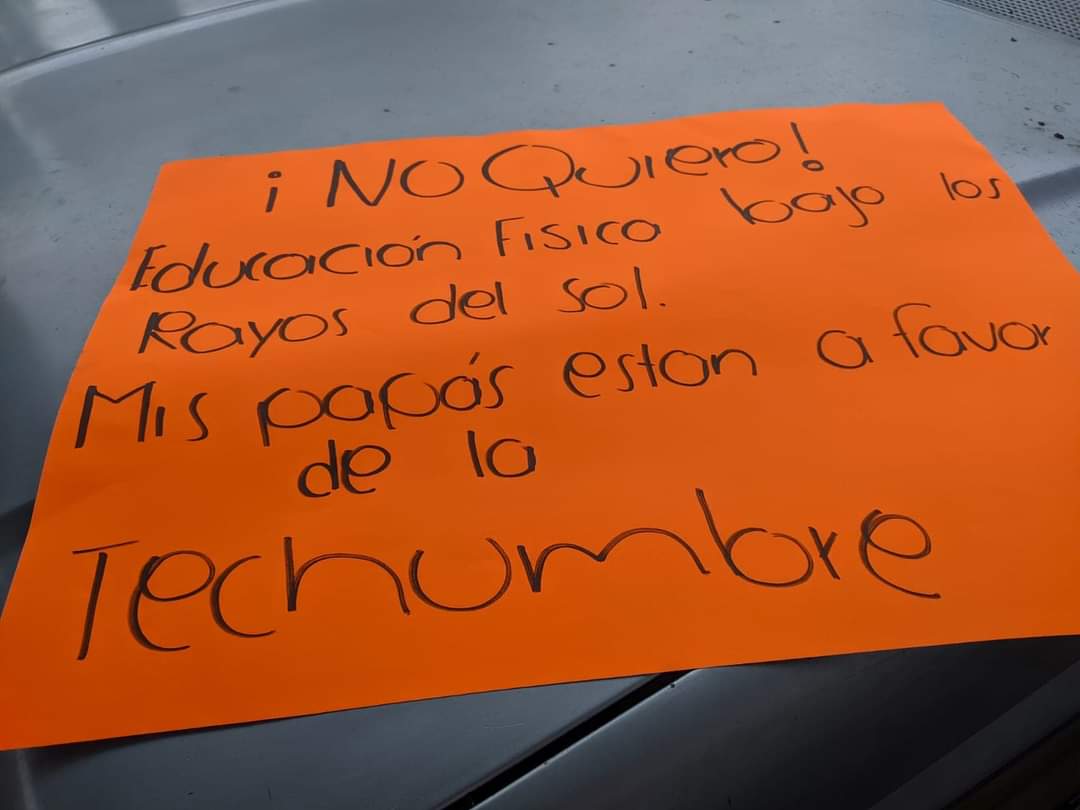 ¡NO Quiero!
Educación Fisica bajo los
Rayos del sol.
Mis papás estan a favor
de la
Techumbre